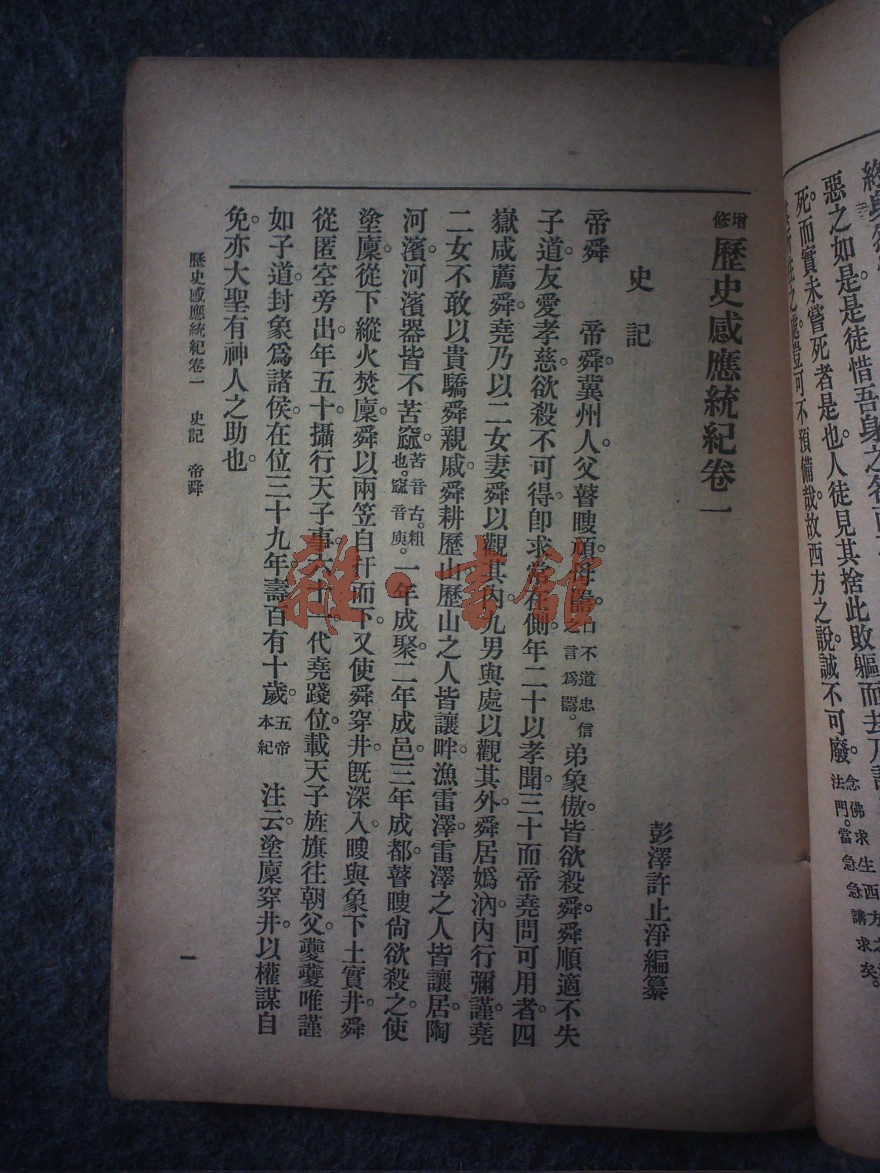 惡之如是。是徒惜吾身之
死而實未嘗死者是也。人徒見其捨此敗軀而去
豈可不預備哉。故西方之說。誠不可廢。念佛求生西方之法門。當急急講求矣。
增修歷史感應統紀卷一
彭澤許止淨編纂
史記
帝舜　帝舜。冀州人。父瞽瞍頑。母嚚。口不道忠信之言爲嚚。弟象傲。皆欲殺舜。舜順適不失
子道。友愛孝慈。欲殺不可得。卽求常在側。年二十以孝聞。三十而帝堯問可用者。四
嶽咸薦舜。堯乃以二女妻舜以觀其內。九男與處以觀其外。舜居嬀汭。內行彌謹。堯
二女不敢以貴驕舜親戚。舜耕歷山。歷山之人皆讓畔。漁雷澤。雷澤之人皆讓居。陶
河濱。河濱器皆不苦窳。苦音古。粗也。窳音庾。一年成聚。二年成邑。三年成都。瞽瞍尙欲殺之。使
塗廩。從下縱火焚廩。舜以兩笠自扞而下。又使舜穿井。旣深入。瞍與象下土實井。舜
從匿空旁出。年五十攝行天子事。六十一代堯踐位。載天子旌旗。往朝父。夔夔唯謹
如子道。封象爲諸侯。在位三十九年。壽百有十歲。五帝本紀　注云。塗廩穿井。以權謀自
免。亦大聖有神人之助也。
歷史感應統紀卷一　史記　帝舜
一
雜·書館